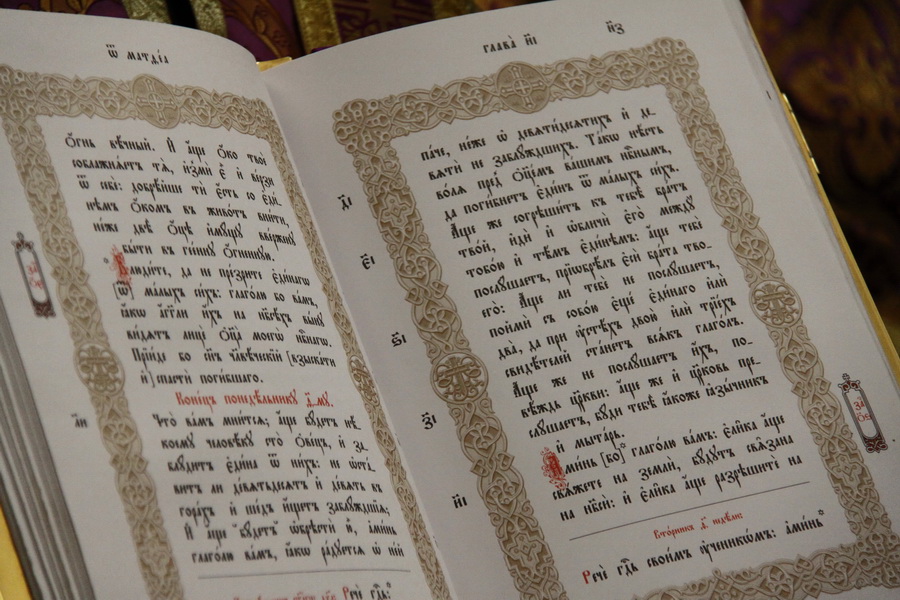 Ѿ МАТѲЕ́А
Ѻ҆́гнь вѣ́чный. И҆ а҆́ще ѻ҆́ко твоѐ
соблажнѧ́етъ тѧ̀, и҆змѝ є҆̀ и҆ ве́рзи
ѿ себє̀: добрѣ́йше тѝ є҆́сть со є҆ди́-
нѣмъ ѻ҆́комъ въ живо́тъ вни́ти,
не́же двѣ̀ ѻ҆́цѣ и҆мꙋ́щꙋ вве́рженꙋ
бы́ти въ гее́ннꙋ ѻ҆́гненнꙋю.
Блюди́те, да не пре́зрите є҆ди́нагѡ
[ѿ] ма́лыхъ си́хъ: гл҃го́лю бо ва́мъ,
ꙗ҆́кѡ а҆́гг҃ли и҆́хъ на нб҃сѣ́хъ вы́нꙋ
ви́дѧтъ лицѐ ѻ҆ц҃а̀ моегѡ̀ нбⷭ҇нагѡ.
Прїи́де бо сн҃ъ чл҃вѣ́ческїй [взыска́ти
и҆] спастѝ поги́бшаго.
Коне́цъ понедѣ́льникꙋ д҃-мꙋ.
Что̀ ва́мъ мни́тсѧ; а҆́ще бꙋ́детъ нѣ́-
коемꙋ человѣ́кꙋ сто̀ ѻ҆ве́цъ, и҆ за-
блꙋ́дитъ є҆ди́на ѿ ни́хъ: не ѡ҆ста́-
витъ ли де́вѧтьдесѧтъ и҆ де́вѧть въ
гора́хъ и҆ ше́дъ и҆́щетъ заблꙋ́ждшїѧ;
И҆ а҆́ще бꙋ́детъ ѡ҆брѣстѝ ю҆̀, а҆ми́нь
гл҃го́лю ва́мъ, ꙗ҆́кѡ ра́дꙋетсѧ ѡ҆ не́й
Речѐ гдⷭ҇ь:
л҃и
ГЛАВА̀ И҃І
н҃з
па́че, не́же ѡ҆ девѧти́десѧтихъ и҆ де-
вѧтѝ не заблꙋ́ждшихъ. Та́кѡ нѣ́сть
во́лѧ пред̾ ѻ҆ц҃е́мъ ва́шимъ нбⷭ҇нымъ,
да поги́бнетъ є҆ди́нъ ѿ ма́лыхъ си́хъ.
А҆́ще же согрѣши́тъ къ тебѣ̀ бра́тъ
тво́й, и҆дѝ и҆ ѡ҆бличѝ є҆го̀ междꙋ̀
тобо́ю и҆ тѣ́мъ є҆ди́нѣмъ: а҆́ще тебѐ
послꙋ́шаетъ, прїѡбрѣ́лъ є҆сѝ бра́та тво-
его̀: А҆́ще ли тебє̀ не послꙋ́шаетъ,
поимѝ съ собо́ю є҆щѐ є҆ди́наго и҆лѝ
два̀, да при ᲂу҆стѣ́хъ двою̀ и҆лѝ трїе́хъ
свидѣ́телей ста́нетъ всѧ́къ глаго́лъ.
А҆́ще же не послꙋ́шаетъ и҆́хъ, по-
вѣ́ждь цр҃кви: а҆́ще же и҆ цр҃ковь пре-
слꙋ́шаетъ, бꙋ́ди тебѣ̀ ꙗ҆́коже ꙗ҆зы́чникъ
и҆ мыта́рь.
А҆ми́нь [бо] гл҃го́лю ва́мъ: є҆ли̑ка а҆́ще
свѧ́жете на землѝ, бꙋ́дꙋтъ свѧ̑зана
на нб҃сѝ: и҆ є҆ли̑ка а҆́ще разрѣшитѐ на
Вто́рникъ д҃ недѣ́ли:
Речѐ гдⷭ҇ь свои̑мъ ᲂу҆ченикѡ́мъ: а҆ми́нь
д҃і
є҃і
ѕ҃і
з҃і
и҃і